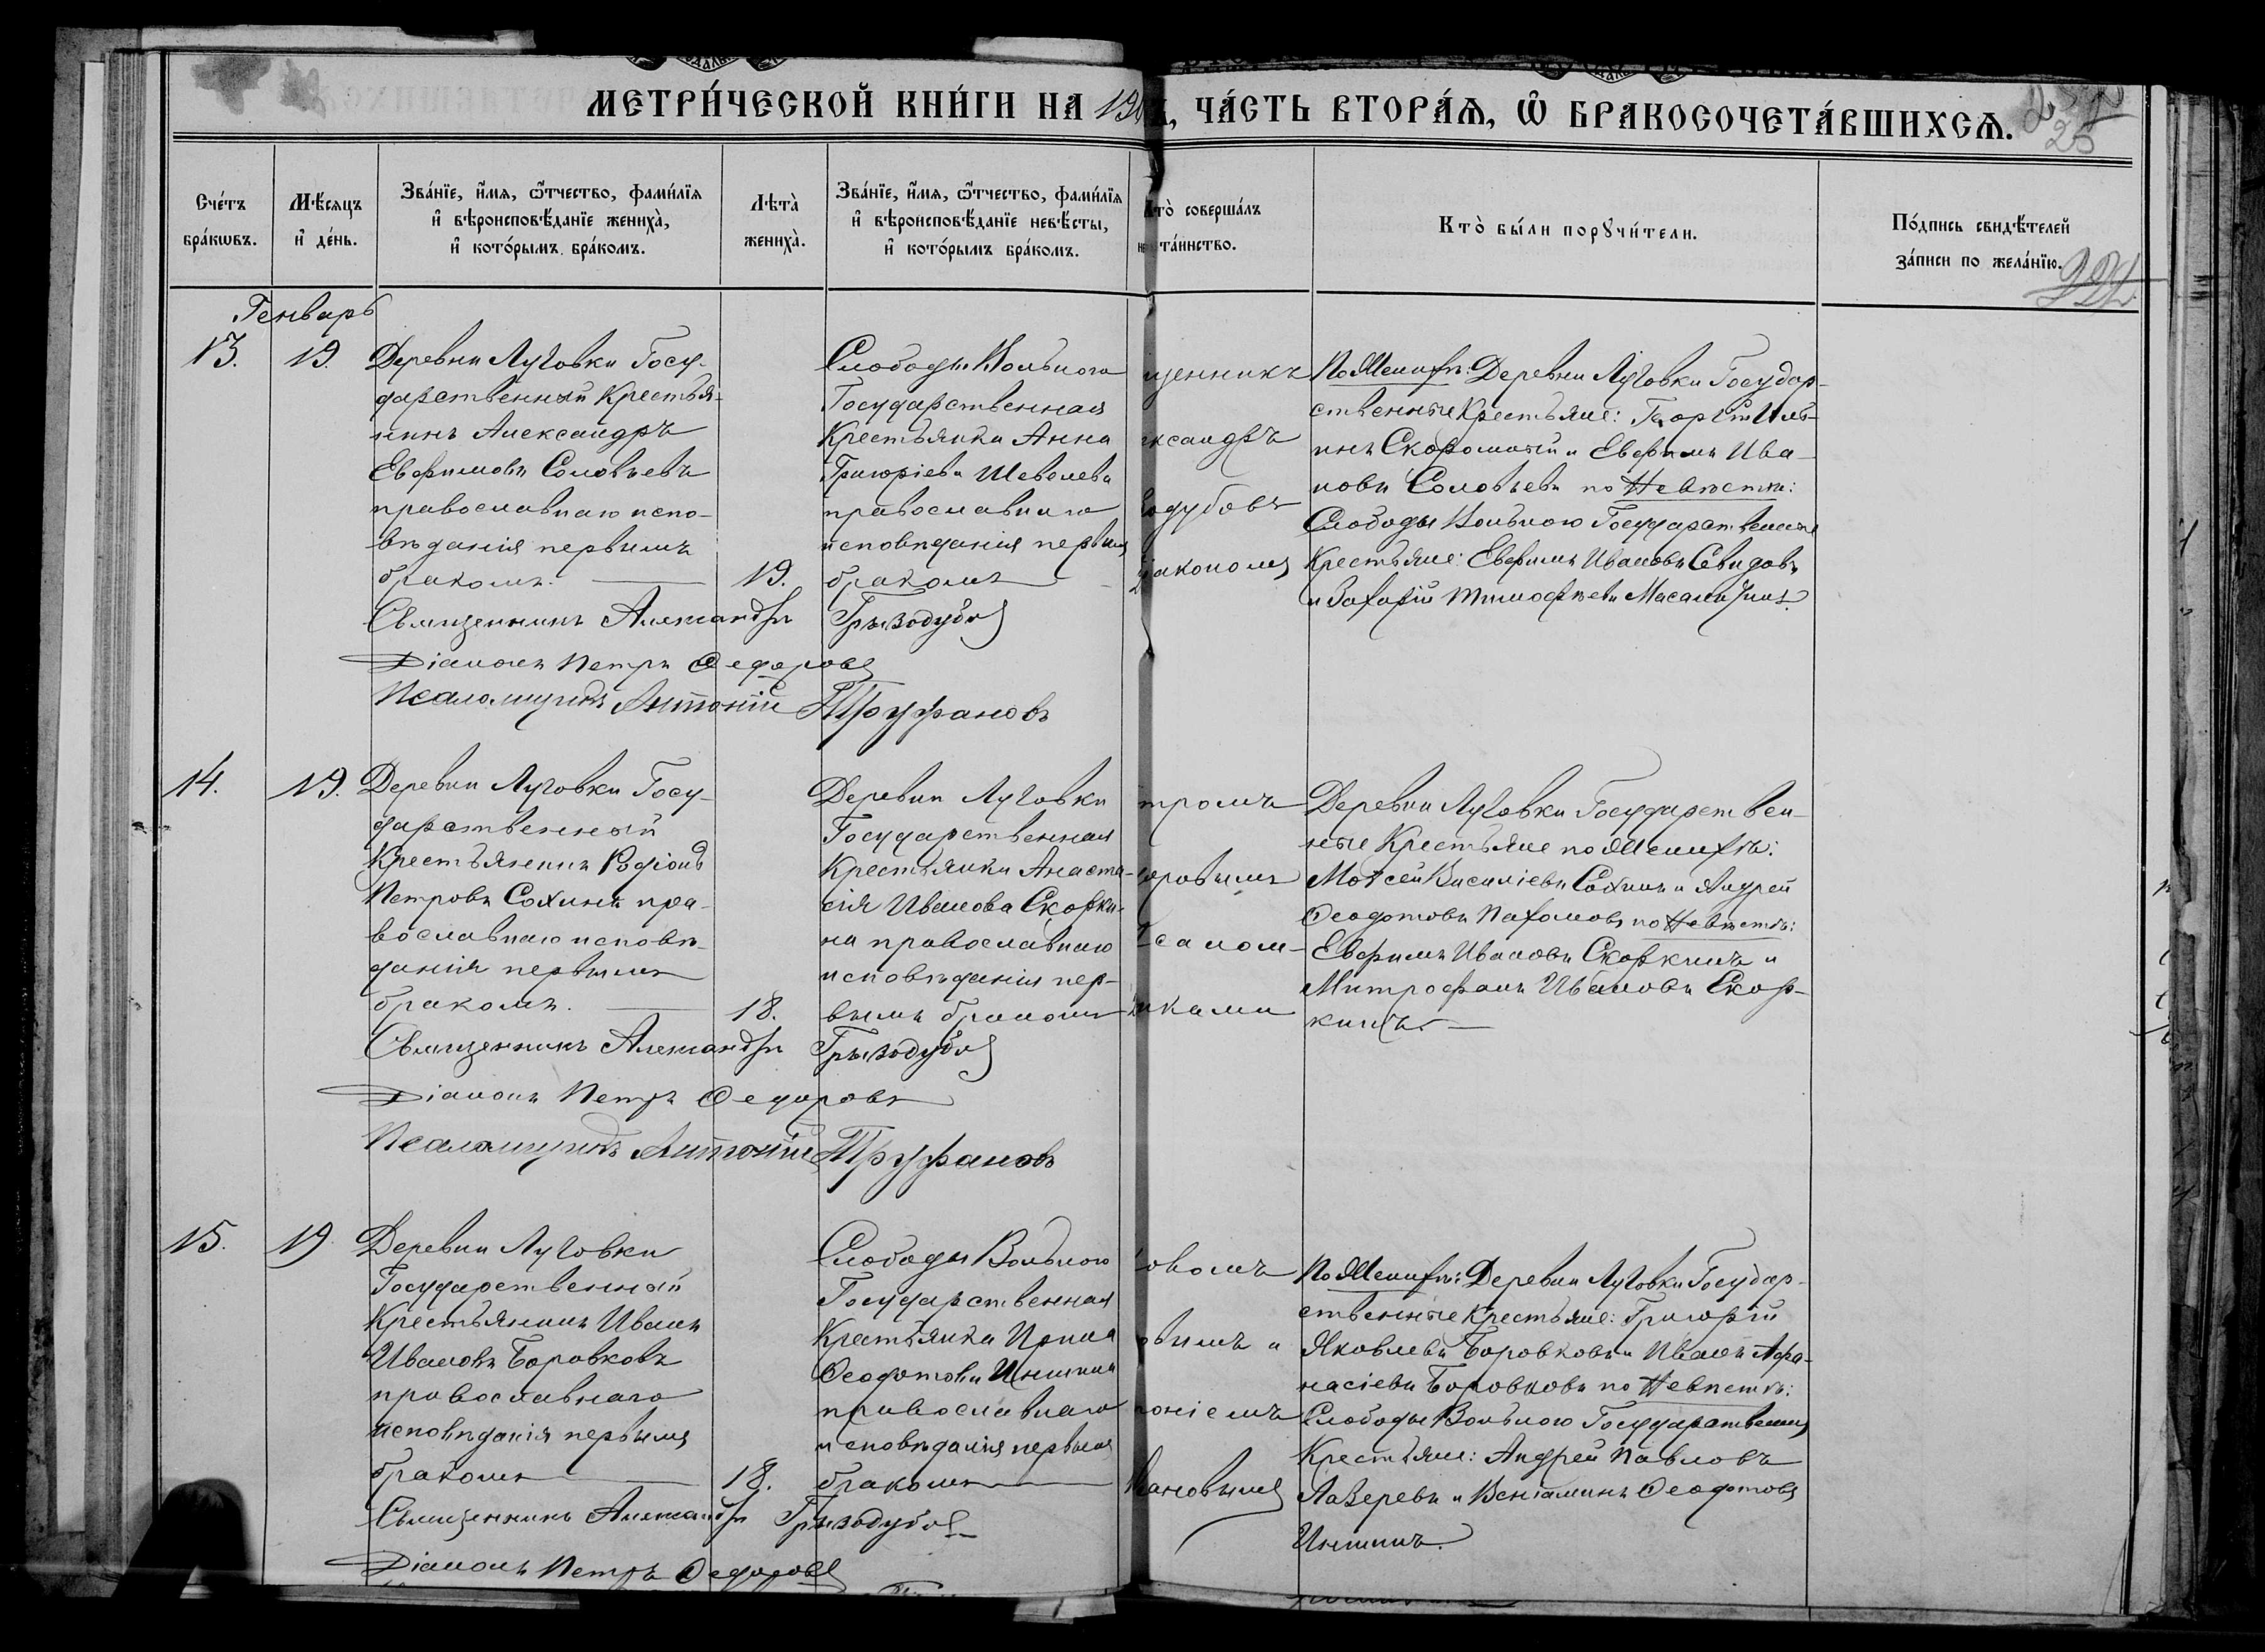 МЕТРИ́ЧЕСКОЙ КНИ́ГИ НА 19
ЧА́СТЬ ВТОРА́Я, Ѿ БРАКОСОЧЕТА́ВШИХСЯ.
25
Сче́тъ бра́кѡвъ.
Мѣ́сяцъ и҆ де́нь.
Зва́нїе, и҆́мя, ѻ҆́тчество, фами́лїя и҆ вѣроисповѣ́данїе жениха̀, и҆ кото́рымъ бра́комъ.
Лѣта̀ жениха̀.
Зва́нїе, и҆́мя, ѻ҆́тчество, фами́лїя и҆ вѣроисповѣ́данїе невѣ́сты, и҆ кото́рымъ бра́комъ.
то̀ соверша́лъ
та́инство.
Кто̀ бы́ли порꙋчи́тели.
По́дпись свидѣ́телей за́писи по жела́нїю.
Генварь
13.
19.
Деревни Луговки Госу-
дарственный Крестья-
нинъ Александръ
Евфимовъ Соловьевъ
православнаго испо-
вѣданія первымъ
бракомъ.
19.
Слободы Вольного
Государственная
Крестьянка Анна
Григоріева Шевелева
православнаго
исповѣданія первымъ
бракомъ
щенникъ
ександръ
одубовъ
акономъ
По Женихѣ: Деревни Луговки Государ-
ственные Крестьяне: Георгій Иль-
инъ Скоромный и Евфимъ Ива-
новъ Соловьевъ по Невѣстѣ:
Слободы Вольного Государственные
Крестьяне: Евфимъ Ивановъ Севидовъ
и Захарій Тимофѣевъ
Священникъ Александръ Грызодубовъ
Діаконъ Петръ Федоровъ
Псаломщикъ Антоній Труфановъ
14.
19.
Деревни Луговки Госу-
дарственный
Крестьянинъ Родіонъ
Петровъ Сохинъ пра-
вославнаго исповѣ-
данія первымъ
бракомъ.
18.
Деревни Луговки
Государственная
Крестьянка Анаста-
сія Иванова Скорки-
на православнаго
исповѣданія пер-
вымъ бракомъ
тромъ
оровымъ
Псалом-
иками
Деревни Луговки Государствен-
ные Крестьяне по Женихѣ:
Моѵсей Василіевъ Сохинъ и Андрей
Феодотовъ Пахомовъ по Невѣстѣ:
Евфимъ Ивановъ Скоркинъ и
Митрофанъ Ивановъ Скор-
кинъ.
Священникъ Александръ Грызодубовъ
Діаконъ Петръ Федоровъ
Псаломщикъ Антоній Труфановъ
15.
19
Деревни Луговки
Государственный
Крестьянинъ Иванъ
Ивановъ Боровковъ
православнаго
исповѣданія первымъ
бракомъ
18.
Слободы Вольного
Государственная
Крестьянка Ирина
Феодотова Иншина
православнаго
исповѣданія первымъ
бракомъ
овомъ
овымъ и
оніемъ
ановымъ
По Женихѣ: Деревни Луговки Государ-
ственные Крестьяне: Григорій
Яковлевъ Боровковъ и Иванъ Афа-
насіевъ Боровковъ по Невѣстѣ:
Слободы Вольного Государственные
Крестьяне: Андрей Павловъ
Лазеревъ и Веніаминъ Феодотовъ
Иншинъ.
Священникъ Александръ Грызодубовъ
Діаконъ Петръ Федоровъ